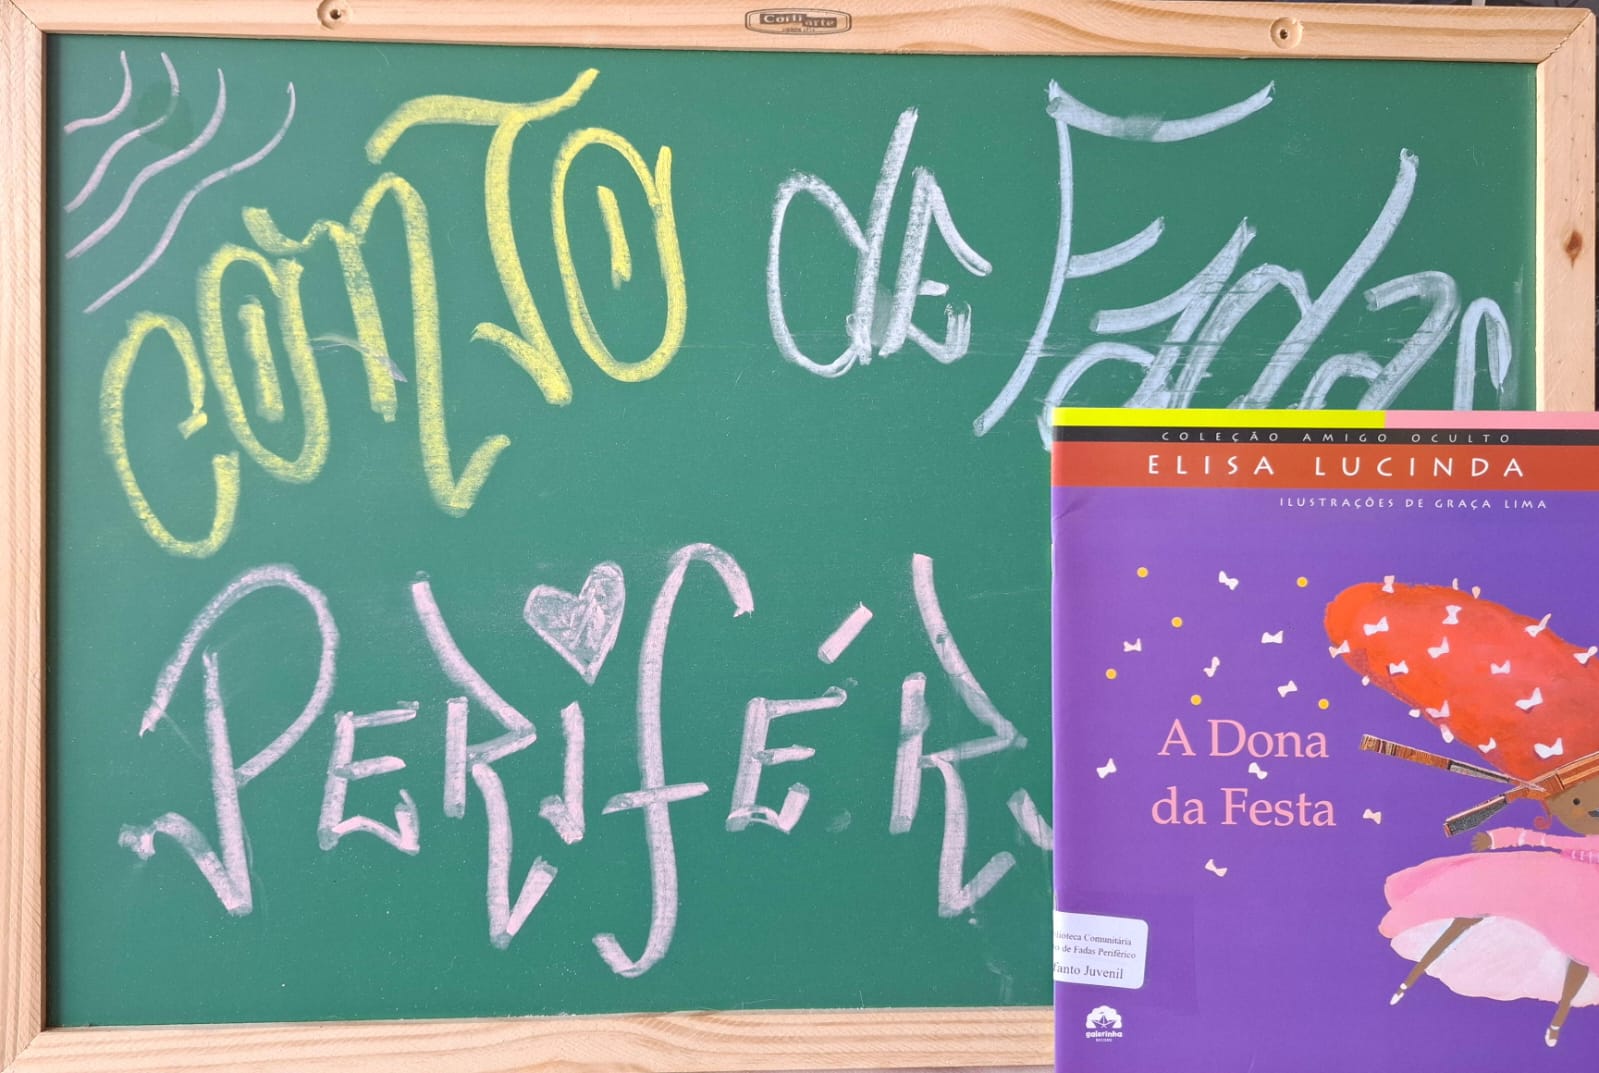 Corti arte
CONTO de Fadas
PERiFÉR
COLEÇÃO AMIGO OCULTO
ELISA LUCINDA
ILUSTRAÇÕES DE GRAÇA LIMA
A Dona
da Festa
lioteca Comunitária
o de Fadas Periférico
fanto Juvenil
galerinha
RECORD